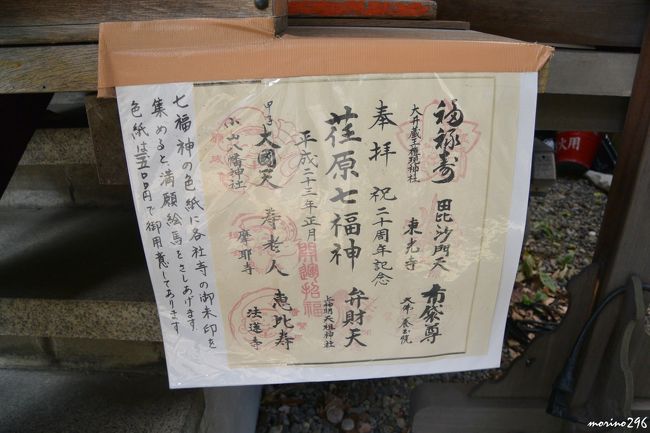 福禄寿
大井蔵王権現神社
毘沙門天
東光寺
布袋尊
大佛養玉院
奉拝 祝二十周年記念
荏原七福神
弁財天
上神明天祖神社
平成二十三年正月
開運招福
恵比寿
法蓮寺
甲子
大國天
小山八幡神社
寿老人
摩耶寺
七福神の色紙に各社寺の御朱印を
集めると満願絵馬をさしあげます
色紙は五〇〇円で御用意してあります
火用
morino296